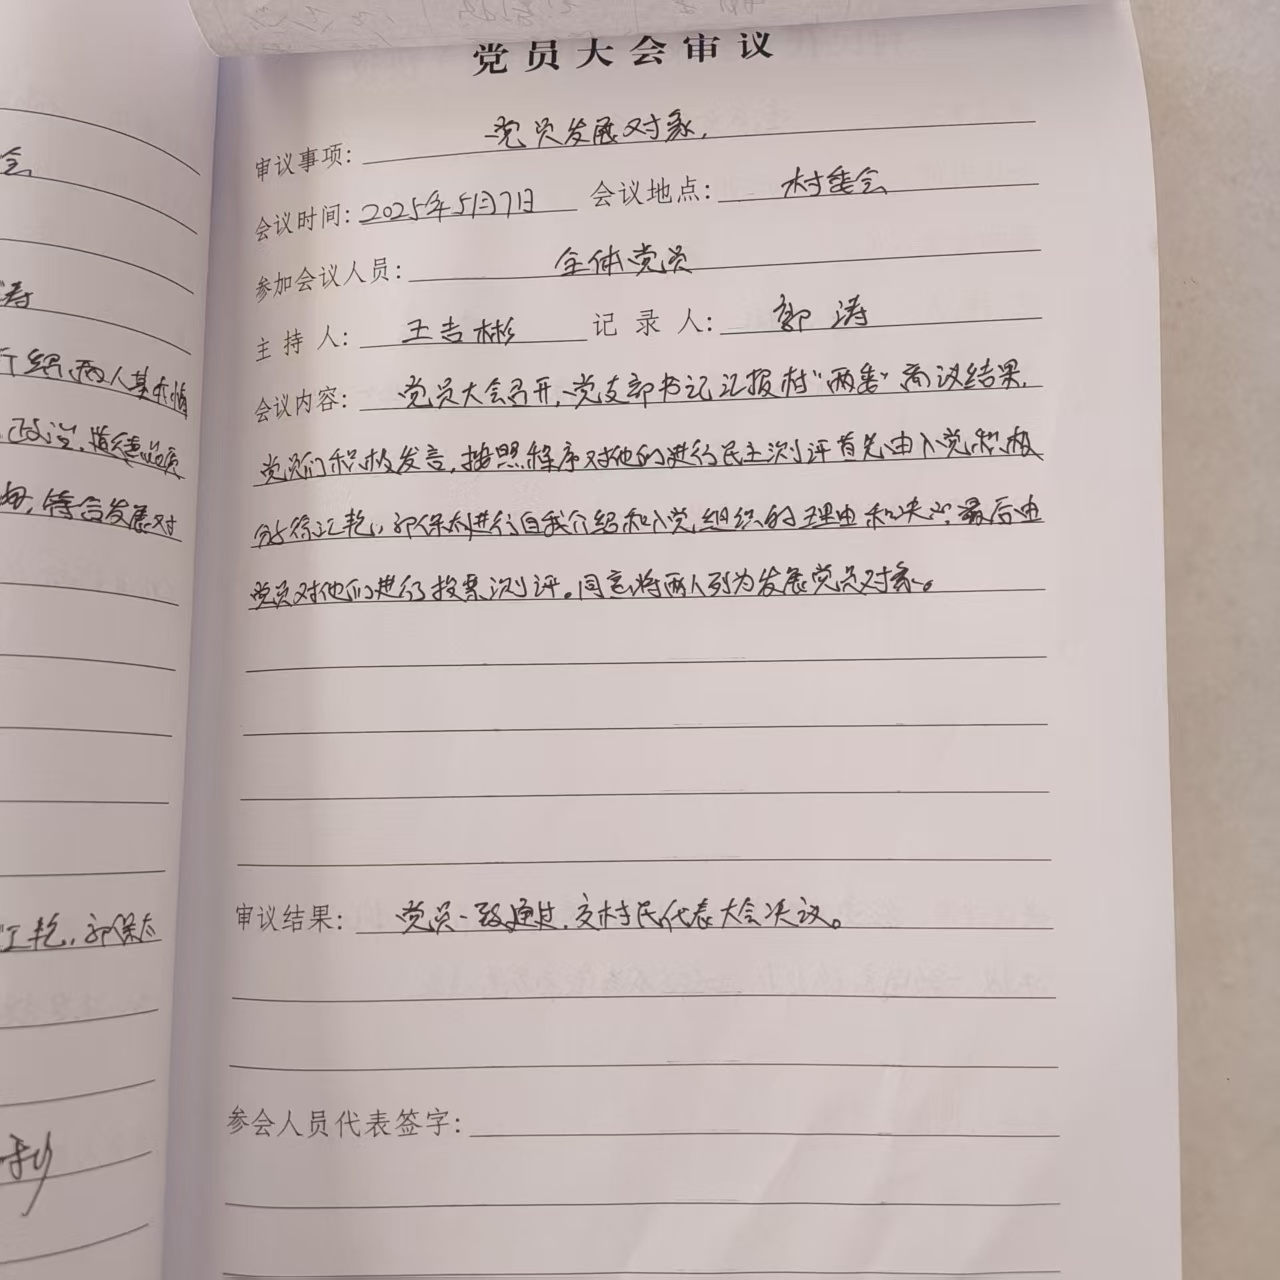 党员大会审议
审议事项: 党员发展对象,
会议时间: 2025年5月7日 会议地点: 村委会
参加会议人员: 全体党员
主持人: 王吉彬 记录人: 郭涛
会议内容: 党员大会召开,党支部书记汇报村"两委"商议结果,
党员们积极发言,按照程序对他们进行民主测评首先由入党积极
分子徐汇乾,郭保利进行自我介绍和入党组织的理由和决心,最后由
党员对他们进行投票测评。同意将两人列为发展党员对象。
审议结果: 党员一致通过,交村民代表大会决议。
参会人员代表签字:
会
涛
介绍,两人基本情
政治,道德品质
符合发展对
汇乾,郭保